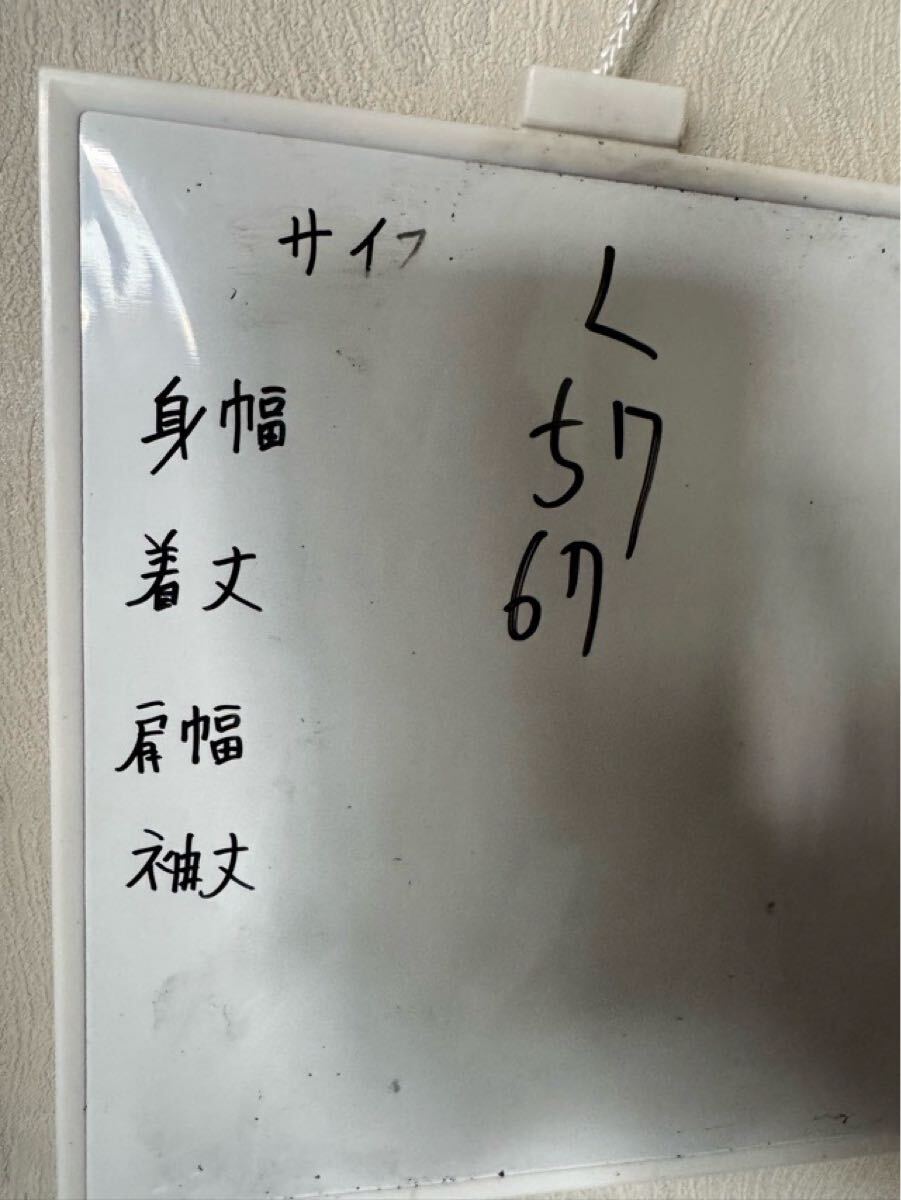 サイフ L
身幅 57
着丈 67
肩幅
袖丈